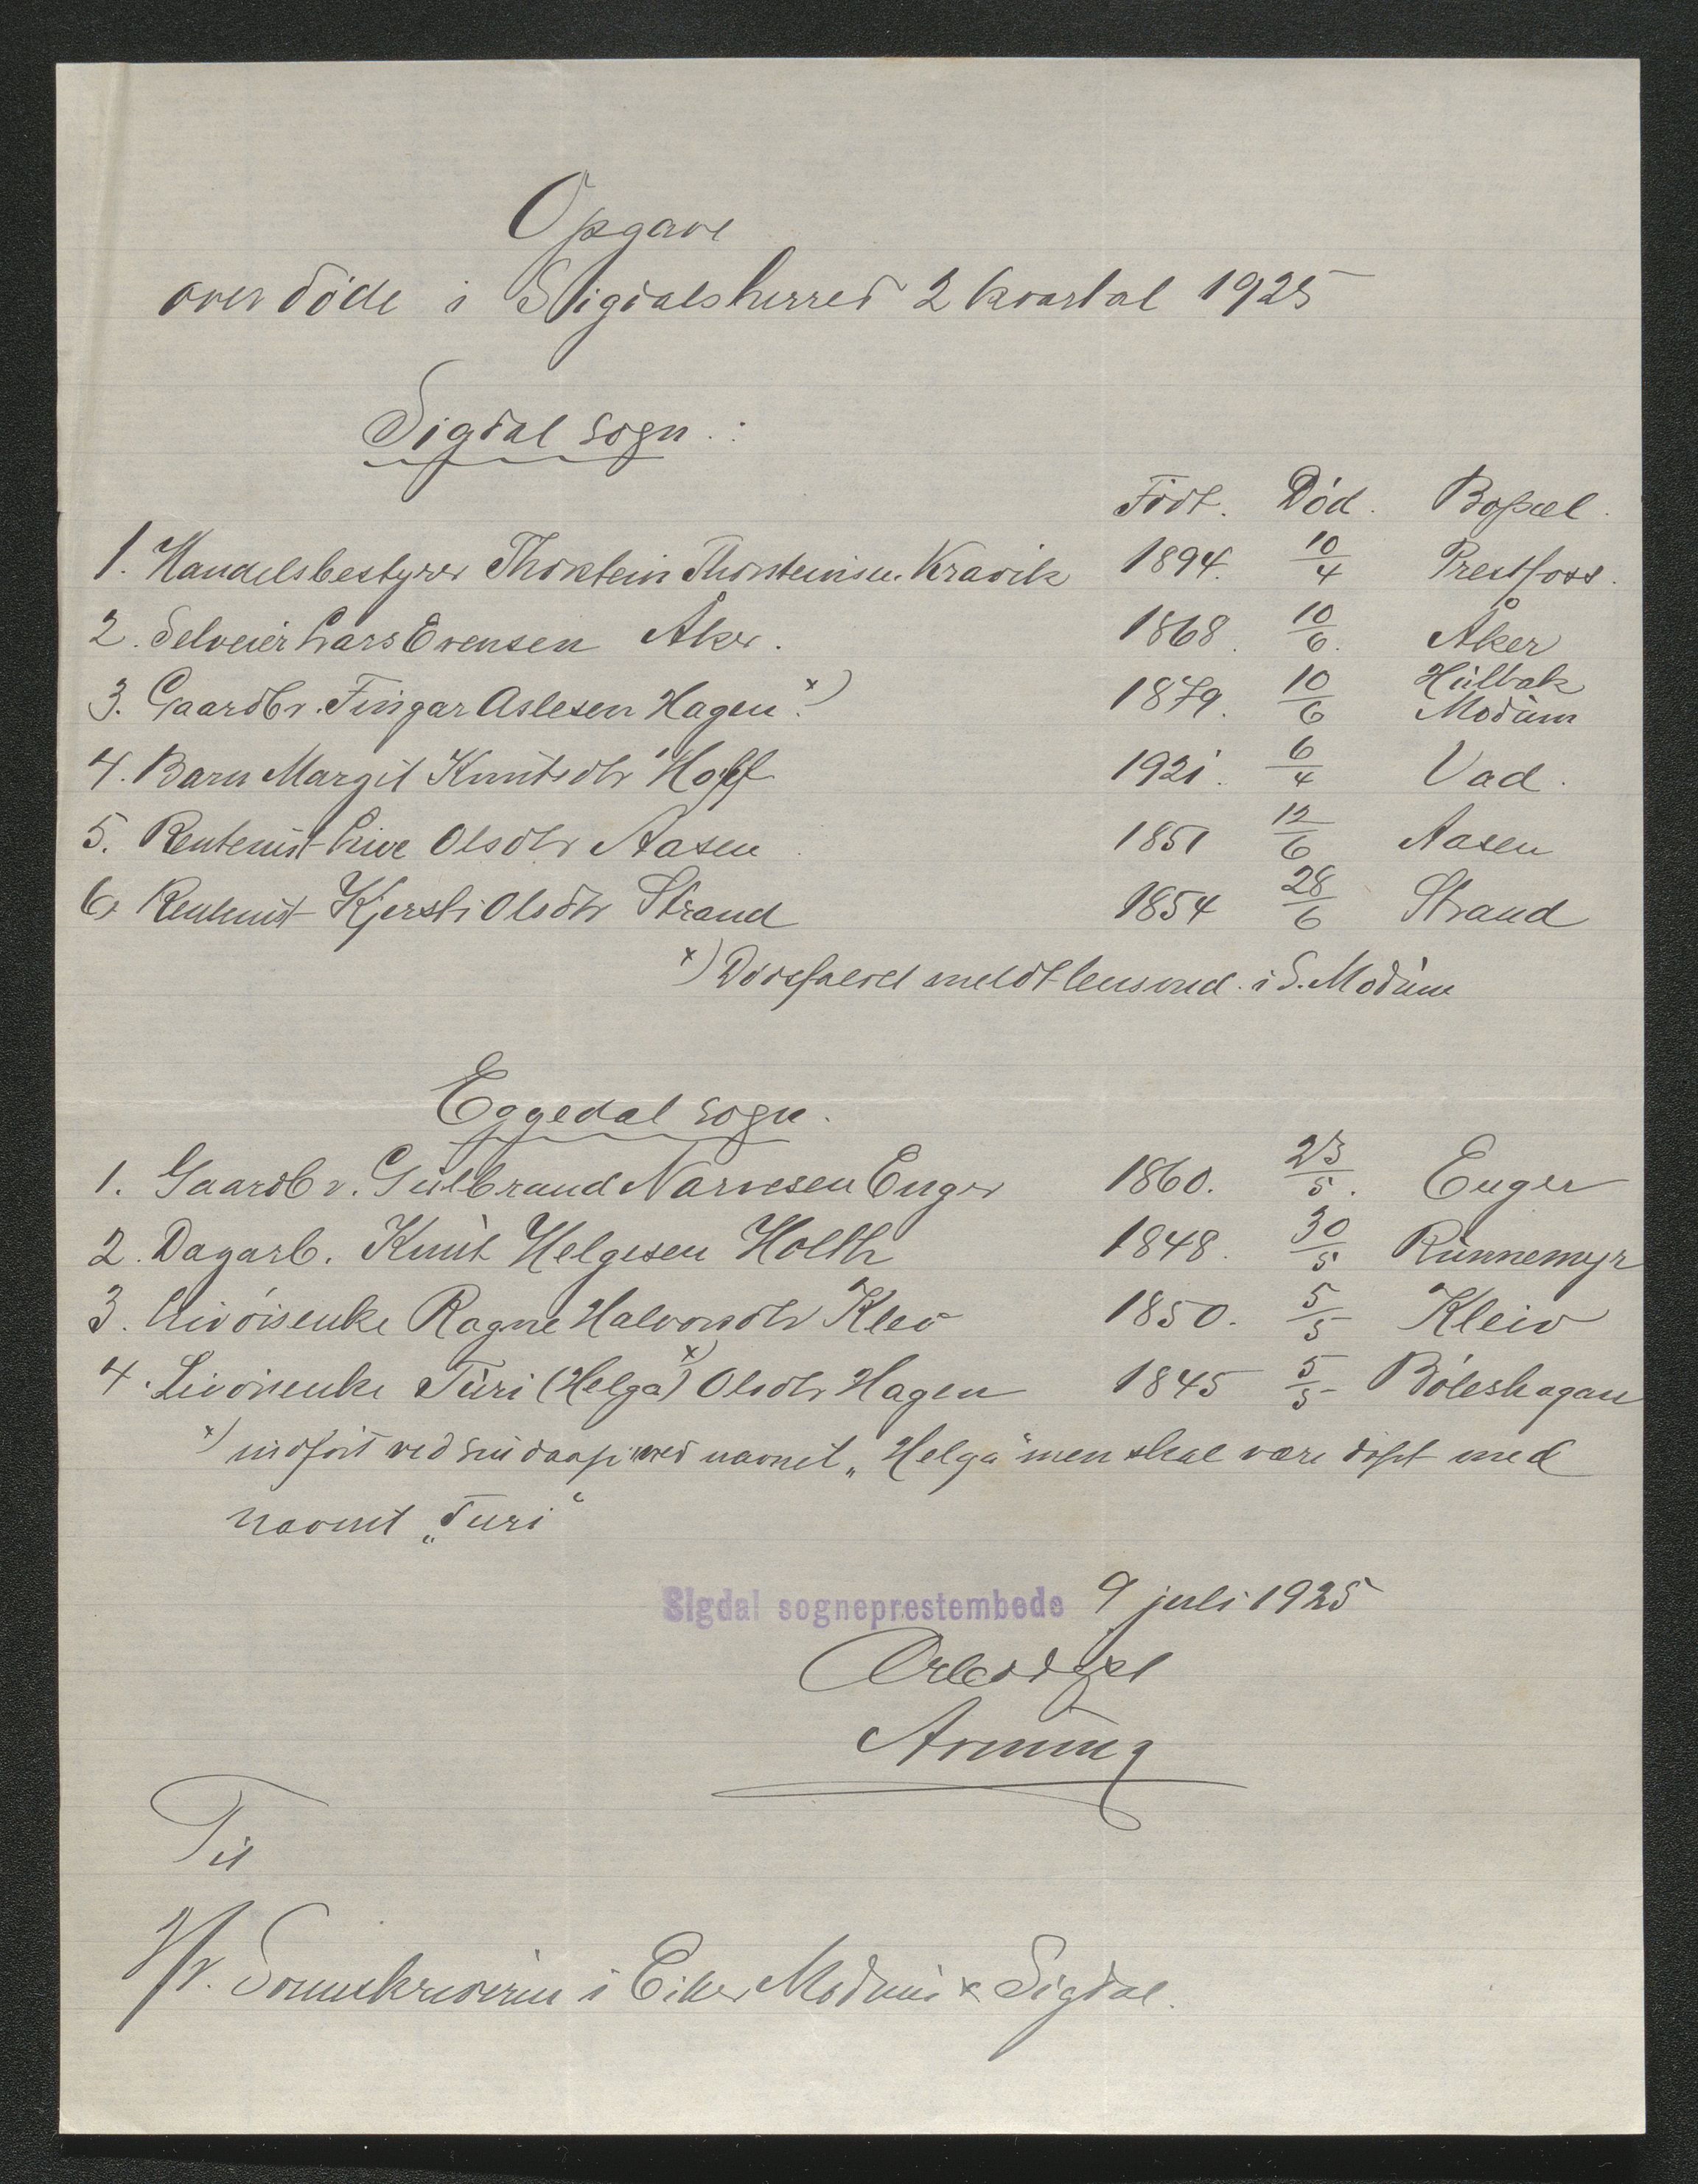 Opgave
over döde i Sigdalsherred 2 kvartal 1925
Sigdal sogn.:
Födt. Död. Bopæl.
1. Handelsbestyrer Thorstein Thorsteinsen Kravik 1894. 10/4 Prestfoss.
2. Selveier Lars Evensen Åker. 1868. 10/6. Åker
3. Gaardbr. Fingar Aslesen Hagen x) 1879. 10/6 Hulbak Modum
4. Barn Margit Knutsdtr Hoff 1921. 6/4 Vad.
5. Rentenist Live Olsdtr Aasen 1851 12/6 Aasen
6. Rentenist Kjersti Olsdtr Strand 1854 28/6 Strand
x) Dödsfaldet meldt lensmd. i S. Modum
Eggedal sogn.
1. Gaardbr. Gulbrand Narvesen Enger 1860. 23/5. Enger
2. Dagarb. Knut Helgesen Holth 1848. 30/5 Runnemyr
3. Livöisenke Ragne Halvorsdtr Kleiv 1850. 5/5 Kleiv
4. Livöisenke Turi (Helga) x) Olsdtr Hagen 1845 5/5 Böleshagan
x) indfört ved sin daap med navnet „Helga" men skal være döpt med
navnet „Turi"
Sigdal sogneprestembede 9 juli 1925
Ærbödigst
Til
Hr. Sorenskriveren i Eiker Modum & Sigdal.